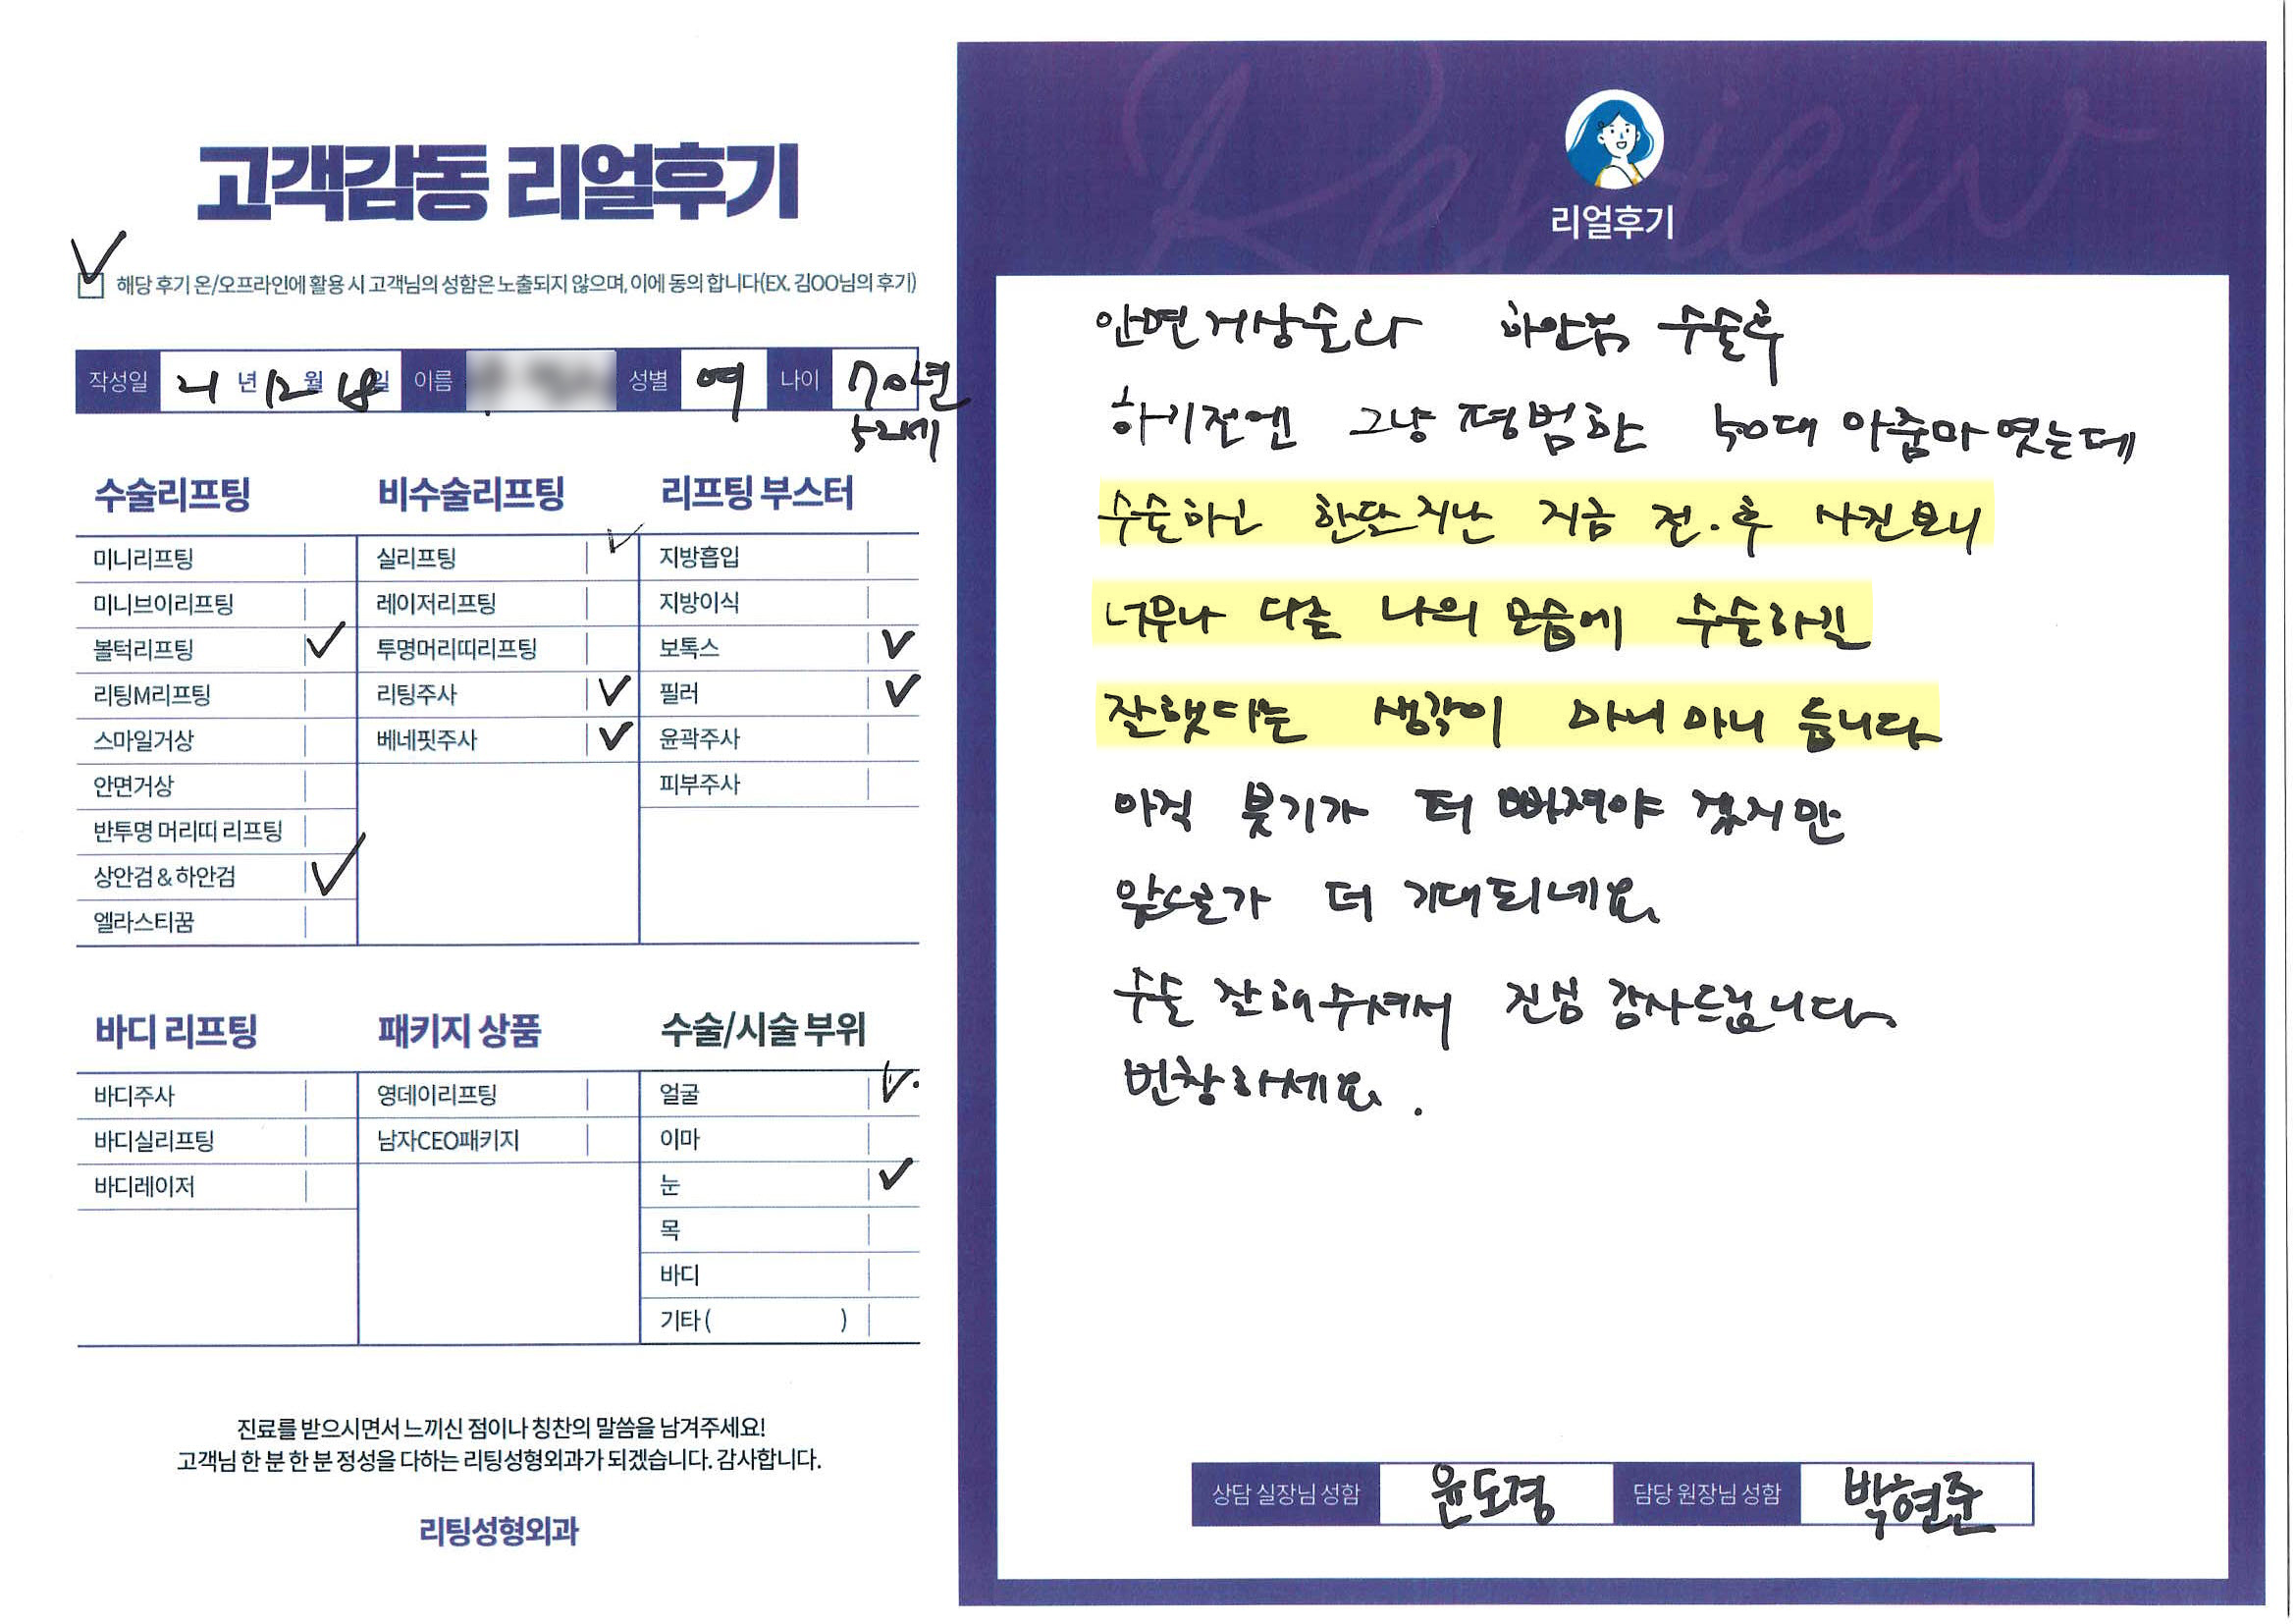 고객감동 리얼후기
해당 후기 온/오프라인에 활용 시 고객님의 성함은 노출되지 않으며, 이에 동의 합니다(EX. 김OO님의 후기)
작성일 21년 12월 18일 이름 성별 여 나이 70년
52세
수술리프팅
미니리프팅
미니브이리프팅
볼턱리프팅
리팅M리프팅
스마일거상
안면거상
반투명 머리띠 리프팅
상안검 & 하안검
엘라스티꿈
비수술리프팅
실리프팅
레이저리프팅
투명머리띠리프팅
리팅주사
베네핏주사
리프팅 부스터
지방흡입
지방이식
보톡스
필러
윤곽주사
피부주사
바디 리프팅
바디주사
바디실리프팅
바디레이저
패키지 상품
영데이리프팅
남자CEO패키지
수술/시술 부위
얼굴
이마
눈
목
바디
기타 ( )
진료를 받으시면서 느끼신 점이나 칭찬의 말씀을 남겨주세요!
고객님 한 분 한 분 정성을 다하는 리팅성형외과가 되겠습니다. 감사합니다.
리팅성형외과
Review
리얼후기
안면거상술과 하안검 수술후
하기전엔 그냥 평범한 50대 아줌마 였는데
수술하고 한달지난 지금 전.후 사진보니
너무나 다른 나의 모습에 수술하길
잘했다는 생각이 마니 마니 듭니다
아직 붓기가 더 빠져야 겠지만
앞으로가 더 기대되네요
수술 잘해주셔서 진심 감사드립니다.
번창하세요.
상담 실장님 성함 윤도경 담당 원장님 성함 박현준